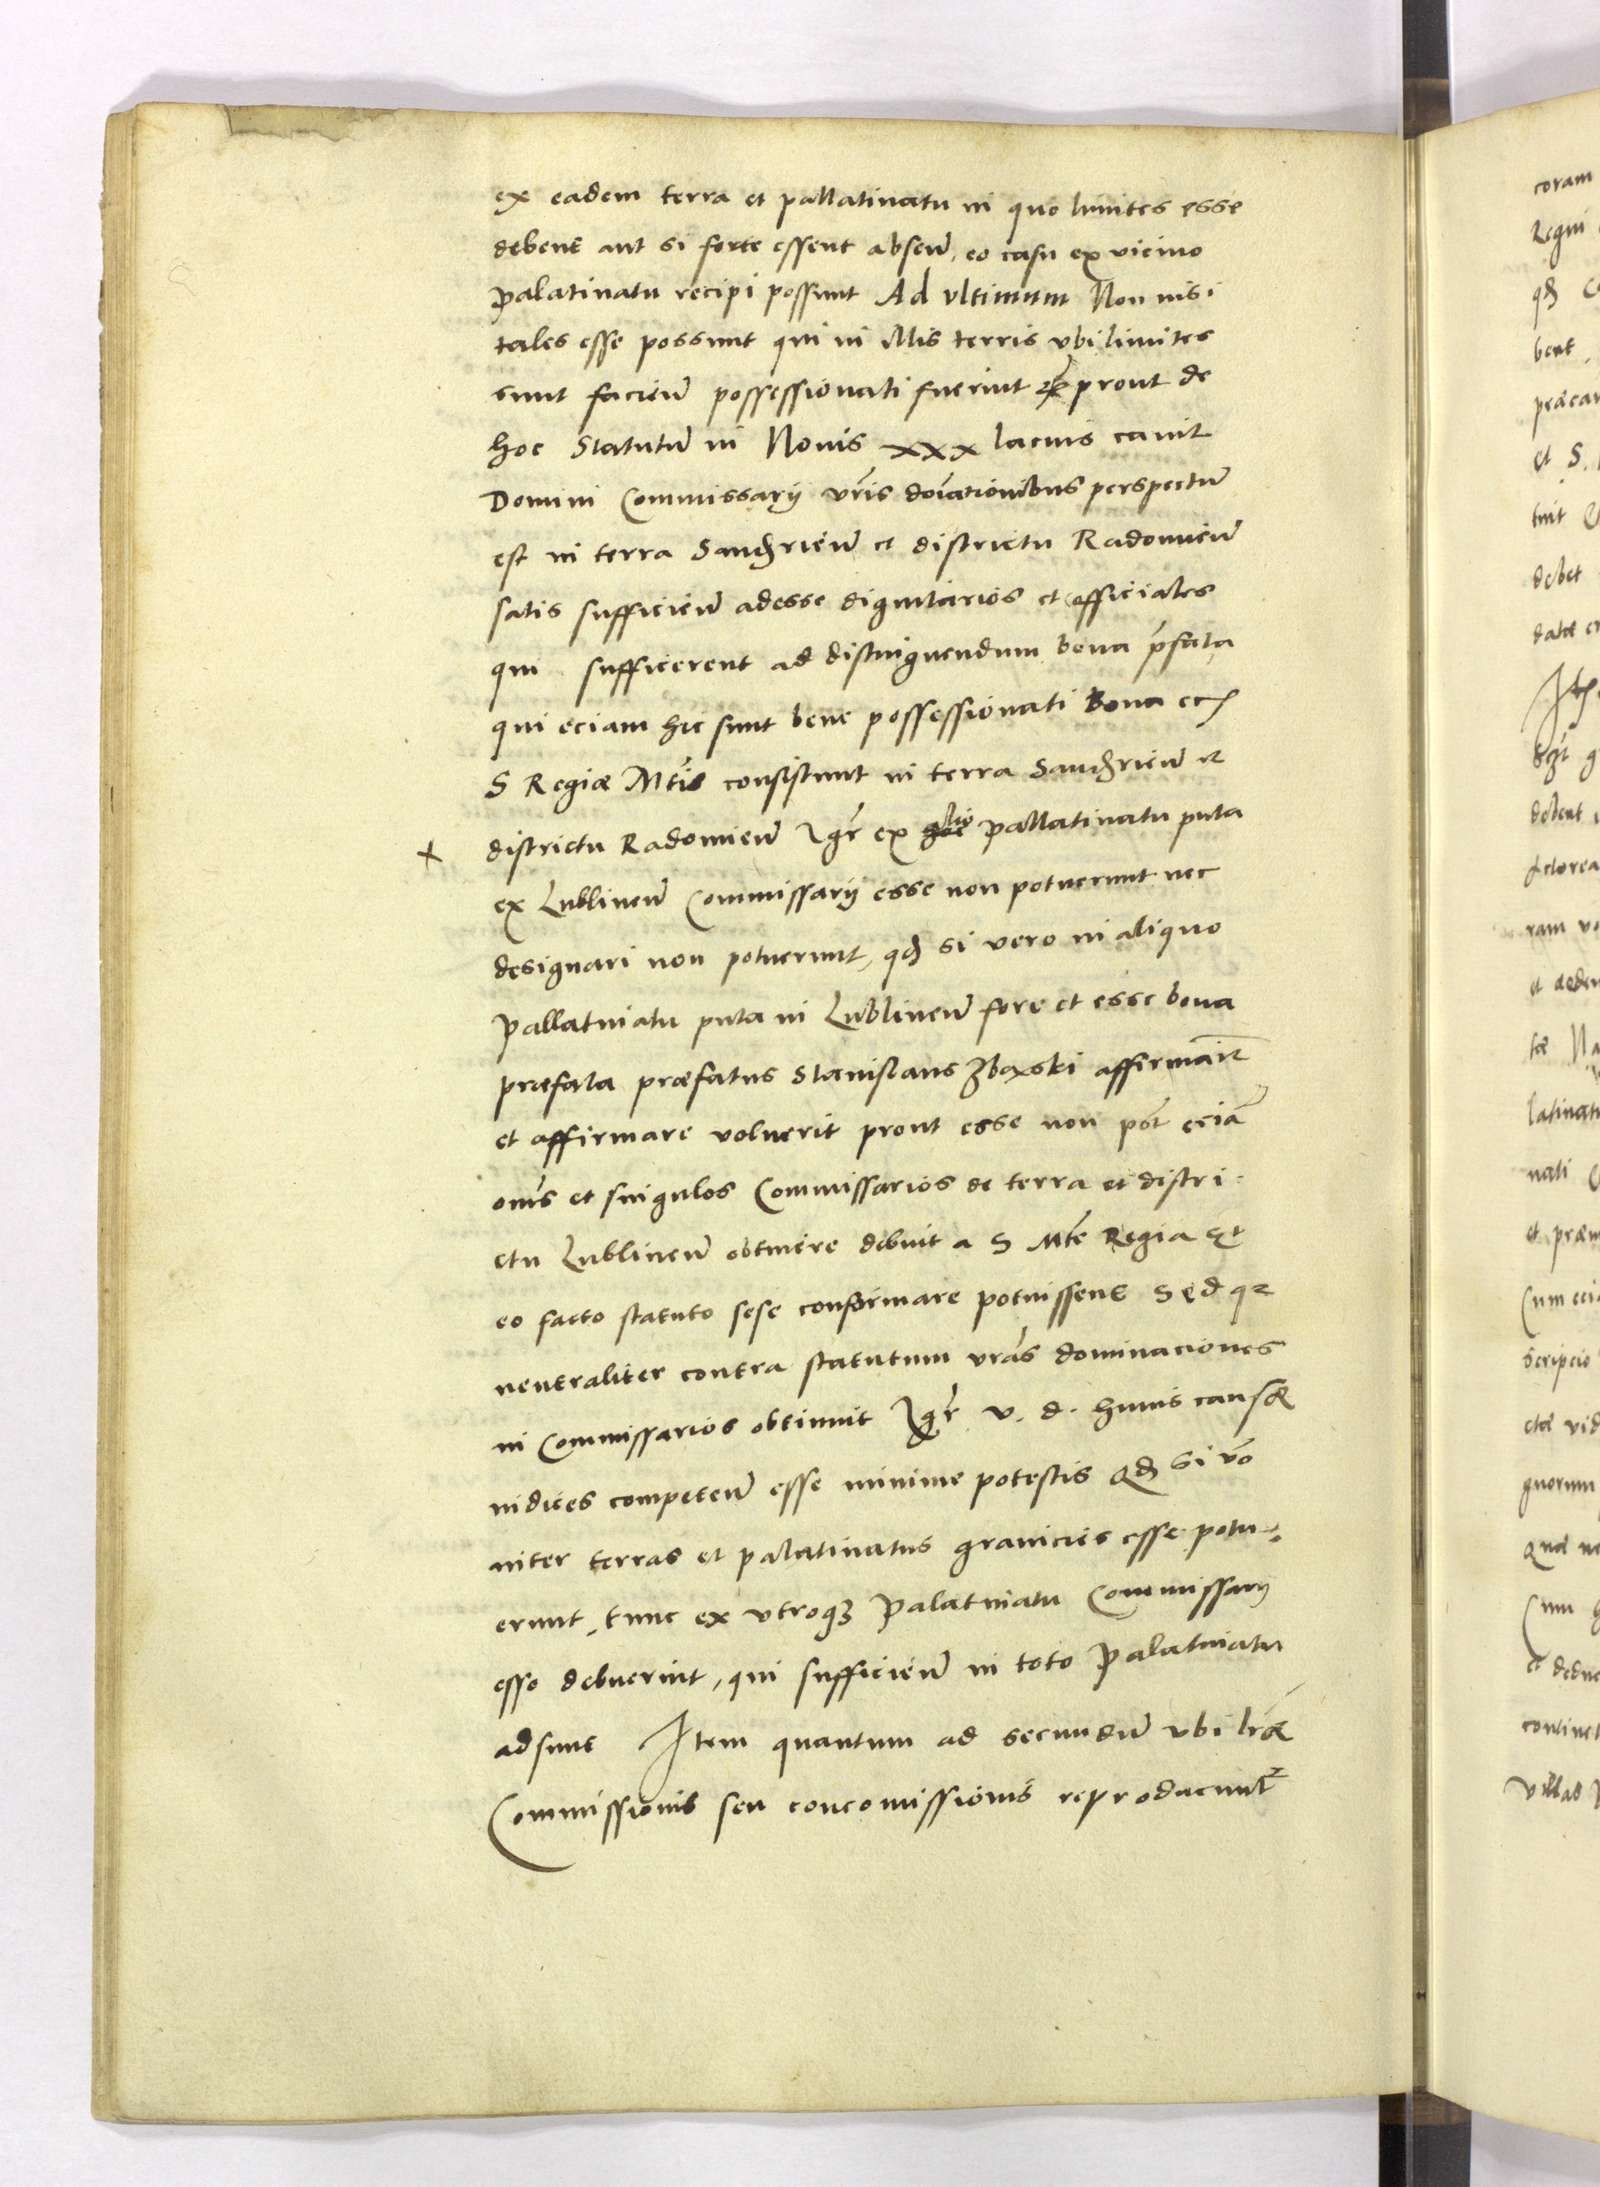 ex eadem terra et pallatinatu in quo limites esse
debent aut si forte essent absen̄, eo casu ex vicino
palatinatu recipi possunt Ad vltimum Non nisi
tales esse possunt qui in illis terris vbi limites
sunt facien̄ possessionati fuerint prout de
hoc Statutū in Nouis xxx lacius cauit
Domini Commissarij vr̄is dōīationibus perspectū
est in terra Sandomirien̄ et districtu Radomien̄
satis sufficien̄ adesse dignitarios et officiales
qui sufficerent ad distinguendum bona p̄fata
qui eciam hic sunt bene possessionati Bona
S Regiæ Mt̄is consistunt in terra Sandomirien̄ et
districtu Radomien̄ Igr̄ ex alio pallatinatu puta
ex Lublinen̄ Commissarij esse non potuerunt nec
designari non potuerunt, qd si vero in aliquo
Pallatinatu puta in Lublinen̄ fore et esse bona
præfata præfatus Stanislaus Zbaxski affirmau̅it
et affirmare voluerit prout esse non pōt eciā
om̄s et singulos Commissarios de terra et distri-
ctu Lublinen̄ obtinere debuit a S Mt̄e Regia Et
eo facto statuto sese conformare potuissent Sed qr
neutraliter contra statutum vrās dominaciones
in Commissarios obtinuit Igr̄ v. d. huius causæ
iudices competen̄ esse minime potestis Qd si v̄o
inter terras et palatinatus granicies esse potu-
erunt, tunc ex vtroqz Palatinatu Commissarij
esse debuerint, qui sufficien̄ in toto Palatinatu
adsunt Item quantum ad secundū vbi lr̄æ
Commissionis seu concomissionis reproducunt